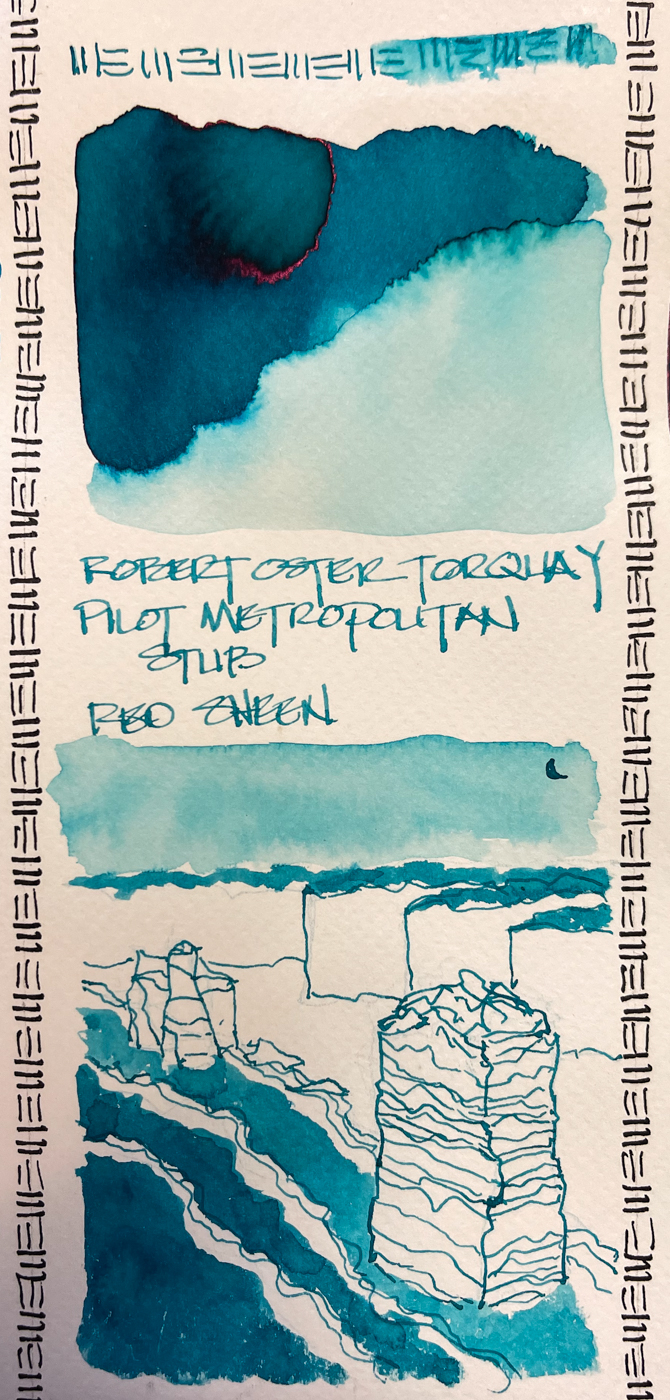 ROBERT OSTER TORQUAY
PILOT METROPOLITAN
STUB
RED SHEEN